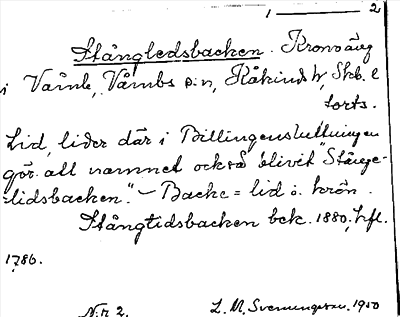 1 — 2
Stångledsbacken. Kronoäng
i Våmb, Våmbs sn, Kåkinds hd, Skb. l.
forts.
Lid, lider där i Billingensluttningen
gör att namnet också blivit "Stånge-
-lidsbacken." – Backe = lid o. krön.
Stångtidsbacken bek. 1880, hfl.
1786.
N:r 2. L. M. Svenungsson, 1950